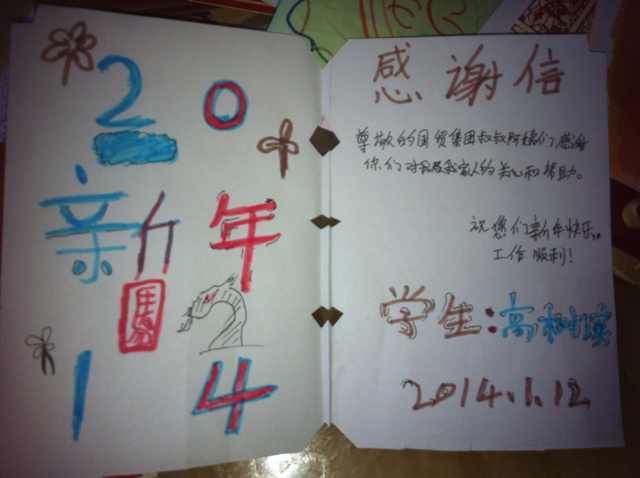 20
新年
14
感谢信
尊敬的国贸集团叔叔阿姨们,感谢
你们对我及我家人的关心和帮助。
祝您们新年快乐。
工作顺利!
学生:高
2014.1.12